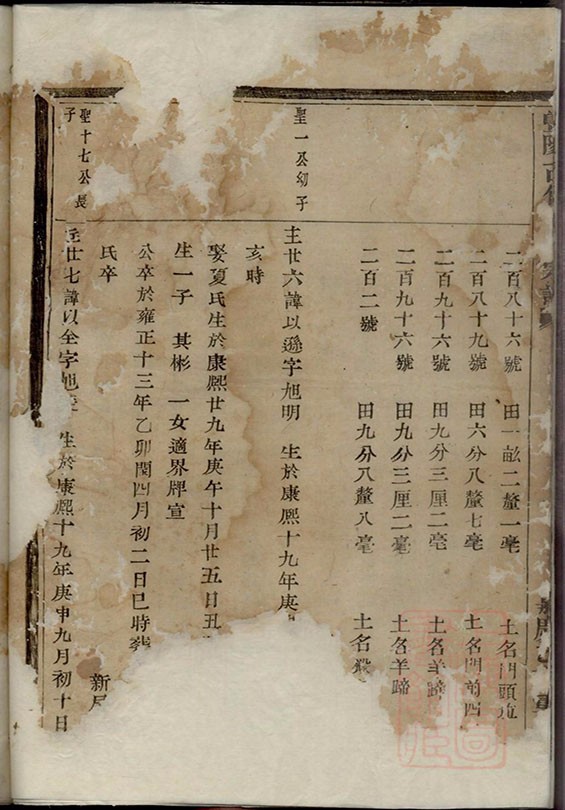 二百八十六號 田一畝二釐一毫 土名門頭
二百八十九號 田六分八釐七毫 土名門前四
二百九十六號 田九分三厘二毫 土名羊蹄
二百九十六號 田九分三厘二毫 土名羊蹄
二百二號 田九分八釐八毫 土名
聖一公幼子
主廿六諱以遜字旭明 生於康熙十九年庚
亥時
娶夏氏生於康熙廿九年庚午十月廿五日丑
生一子 其彬 一女適界牌宣
公卒於雍正十三年乙卯閏四月初二日巳時葬
氏卒 新
聖十七公長子
主廿七諱以全字旭 生於康熙十九年庚申九月初十日